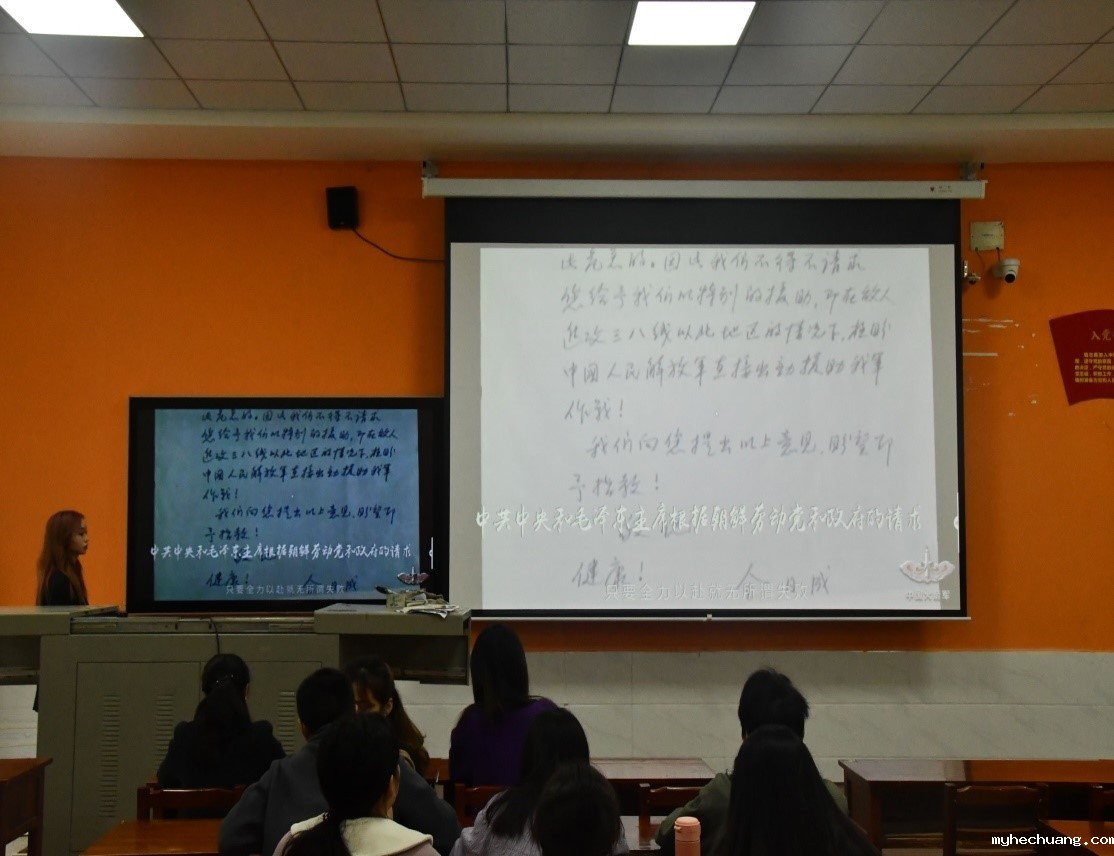 因此我们不得不请求
您给予我们以特别的援助，即在敌人
进攻三八线以北地区的情况下，
中国人民解放军直接出动援助我军
作战！
我们向您提出以上意见，盼望
予指教！
中共中央和毛泽东主席根据朝鲜劳动党和政府的请求
健康！
金日成
只要全力以赴就无所谓失败
因此我们不得不请求
您给予我们以特别的援助，即在敌人
进攻三八线以北地区的情况下，
中国人民解放军直接出动援助我军
作战！
我们向您提出以上意见，盼望
予指教！
中共中央和毛泽东主席根据朝鲜劳动党和政府的请求
健康！
只要全力以赴就无所谓失败
入党
myhechuang.com